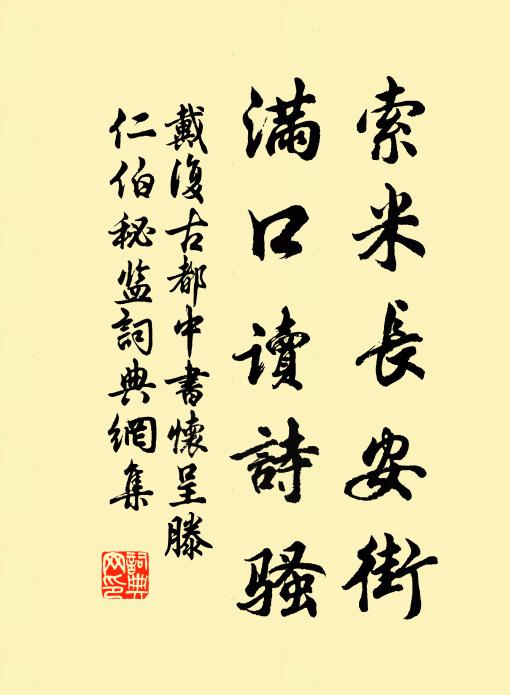 索米長安街
滿口讀詩騷
戴復古都中書懷呈滕
仁伯秘监詞典網集
詞典
网印